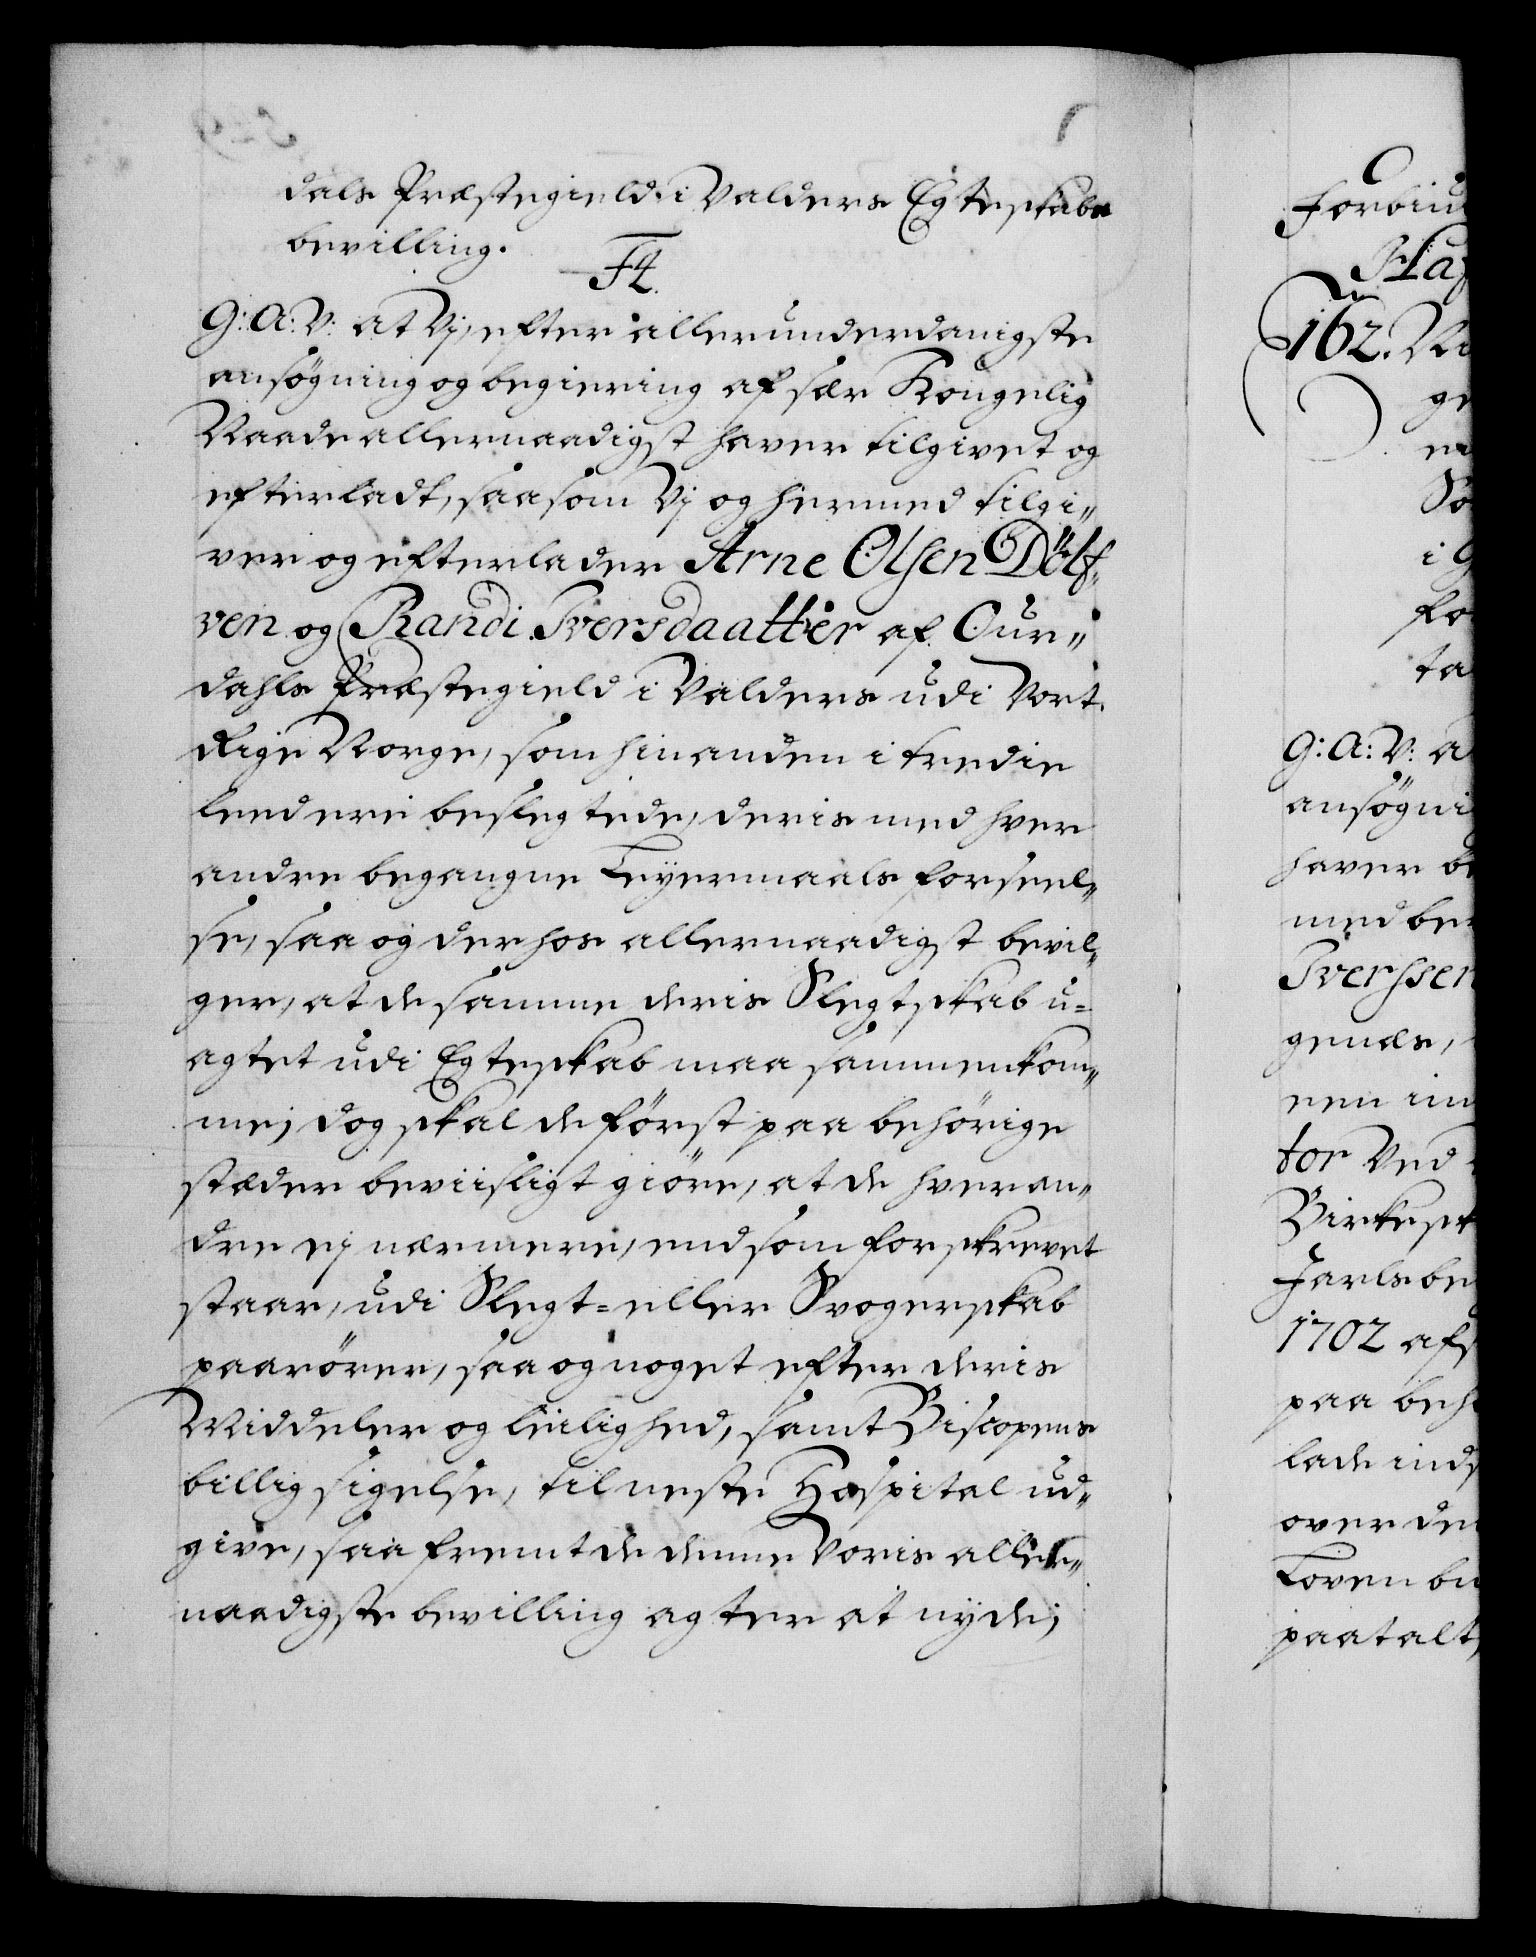 dals Præstegield i Valders Egteskabs
bevilling.
F4.
G: A: V: at Vj, efter allerunderdanigste
ansögning og begiering af sær Kongelig
Naade allernaadigst haver tilgivet og
efterladt, saasom Vj og hermed tilgi„
ver og efterlader Arne Olsen Dölf„
ven og Randi Iversdaatter af Our„
dahls Præstegield i Valders udi Vort
Rige Norge, som hinanden i tredie
leed ere beslegtede, deris med hver
andre begangne Leyermaals forseel„
se, saa og derhos allernaadigst bevil„
ger, at de samme deris Slegtskab u=
agtet udi Egteskab maa sammenkom„
me; dog skal de först paa behörige
stæder beviisligt giöre, at de hveran„
dre ej nærmere, end som forskrevet
staar, udi Slegt= eller Svogerskab
paarörer, saa og noget efter deris
Middeler og leilighed, samt Biscopens
billig sigelse, til neste Hospital ud„
give, saafremt de denne Voris aller„
naadigste bevilling agter at nyde;
forbiu
162. Ni
ge
en
Sö
i G
fo
ta
G: A: V: a
ansögni
haver be
med be
Iverssen
genæs,
een in
tor Ved
Birkesk
Jarlsbe
1702 afs
paa beh
lade inds
over de
Loven
paatalt,